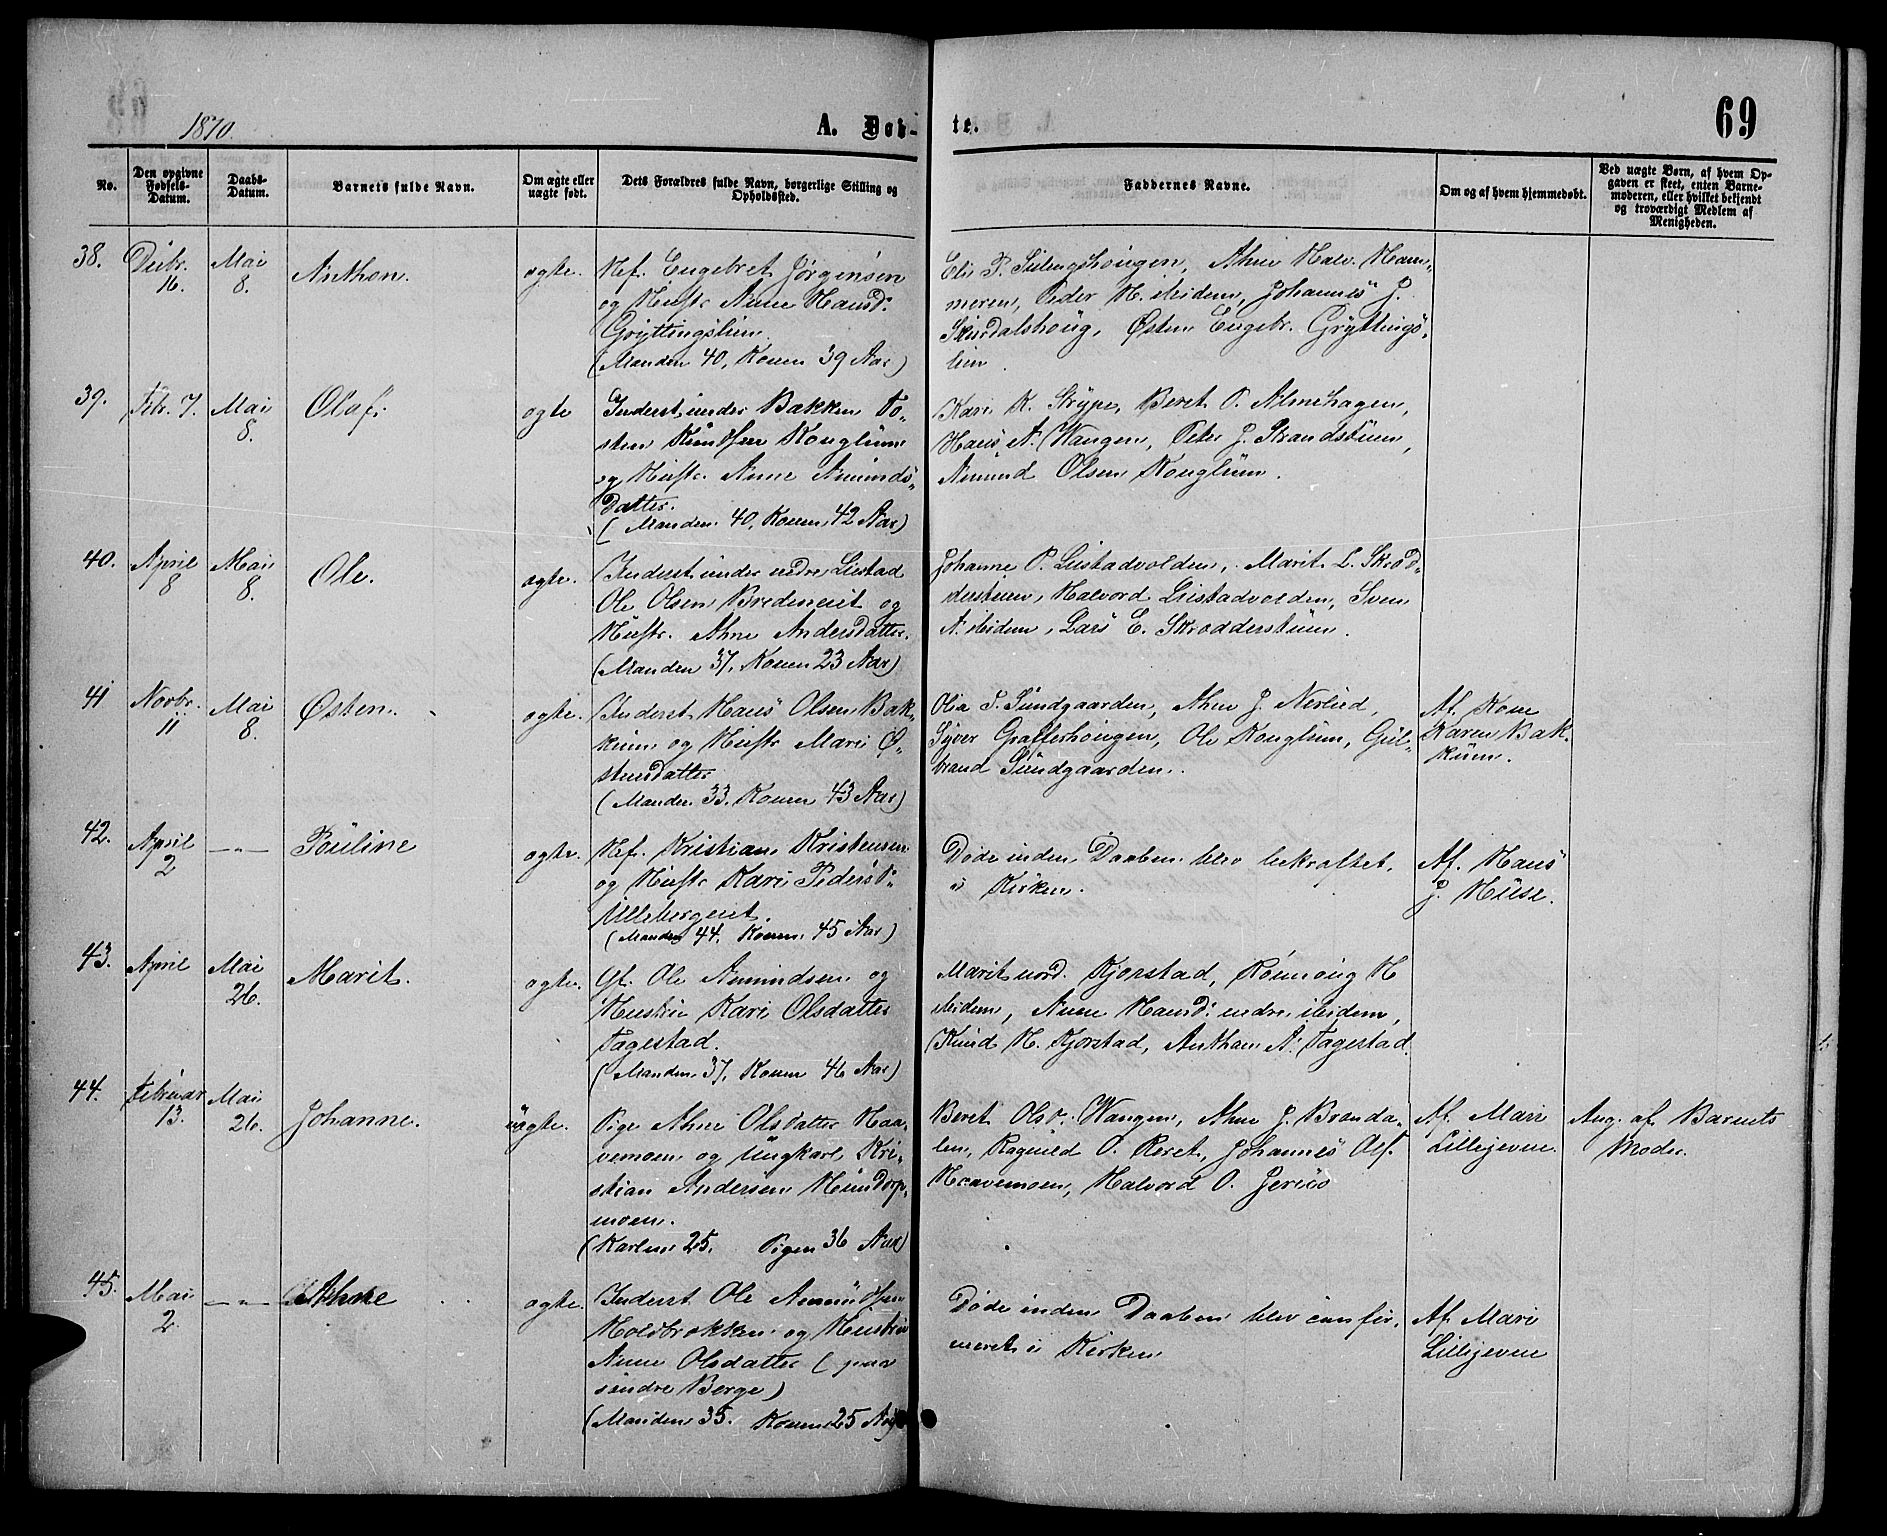 1870.
A. Døb-
te.
69
No.
Den opgivne Fødsels-Datum.
Daabs-Datum.
Barnets fulde Navn.
Om ægte eller uægte født.
Dets Forældres fulde Navn, borgerlige Stilling og Opholdssted.
Faddernes Navne.
Om og af hvem hjemmedøbt.
Ved uægte Børn, af hvem Op-
gaven er skeet, enten Barne-
moderen, eller hvilket bekjendt
og troværdigt Medlem af
Menigheden.
38.
Decbr. 16.
Mai 8.
Anthon.
ægte.
Nef. Engebret Jørgensen
og Hustr. Anne Hansd.
Gryttingslien.
(Manden 40, Konen 39 Aar)
Eli P. Sylengshougen, Ahne Halv. Ham-
meren, Peder H. Meidem, Johannes J.
Skurdalshoug, Østen Engebr. Gryttings-
lien.
39.
Febr. 7.
Mai 8.
Olaf.
ægte
Inderst under Bakken To-
sten Knudsen Konglum
og Hustr. Anne Amunds-
Datter.
(Manden 40, Konen 42 Aar)
Kari K. Skype, Beret O. Almehagen,
Hans A. Wangen, Peter J. Strandstuen,
Amund Olsen Konglum.
40.
April 8
Mai 8.
Ole.
ægte.
Inderst under nedre Listad
Ole Olsen Bredeneiet og
Hustr. Ahne Andersdatter.
(Manden 37, Konen 23 Aar)
Johanne P. Listadvolden, Marit L. Skrod-
derstuen, Halvord Listadvolden, Sven
A. Meidem, Lars E. Skrodderstuen.
41
Novbr. 11
Mai 8.
Østen.
ægte.
Inderst Hans Olsen Bak-
kum og Hustr. Mari Ø-
stensdatter
(Manden 33. Konen 43 Aar)
Olia T. Sundgaarden, Ahne J. Nerlied,
Syver Grafferhougen, Ole Konglum, Gul-
brand Sundgaarden.
Af Kone
Karen Bak-
kum.
42.
April 2
— „ —
Pauline
ægte.
Nef. Kristian Kristensen
og Hustr. Kari Peders D.
Ullebergeiet.
(Manden 44. Konen 45 Aar)
Døde inden Daaben blev bekræftet
i Kirken.
Af. Hans
J. Huse.
43.
April
Mai 26.
Marit.
ægte.
Gf. Ole Amundsen og
Hustru Kari Olsdatter
Fagestad.
(Manden 37, Konen 46 Aar)
Marit nord. Kjorstad, Rønnoug H
Meidem, Anne Hansd. nedre Meidem,
Knud H. Kjorstad, Anthon A. Fagestad.
44.
Februar 13.
Mai 26.
Johanne.
uægte.
Pige Ahne Olsdatter Haa-
vemoen og Ungkarl Kri-
stian Andersen Hundorp-
moen.
(Karlen 25. Pigen 36 Aar)
Beret Olsd. Wangen, Ahne J. Branda-
len, Ragnild O. Reret, Johannes Ols.
Haavemoen, Halvord O. Jerico
Af. Mari
Lillegeven.
Ang. af Barnets
Moder.
45.
Mai 2.
— „ —
Ahne
ægte.
Inderst Ole Amundsen
Holdbrokken og Hustru
Anne Olsdatter (paa
søndre Berge)
(Manden 35. Konen 25 Aar)
Døde inden Daaben blev confir-
meret i Kirken
Af. Mari
Lillegeven